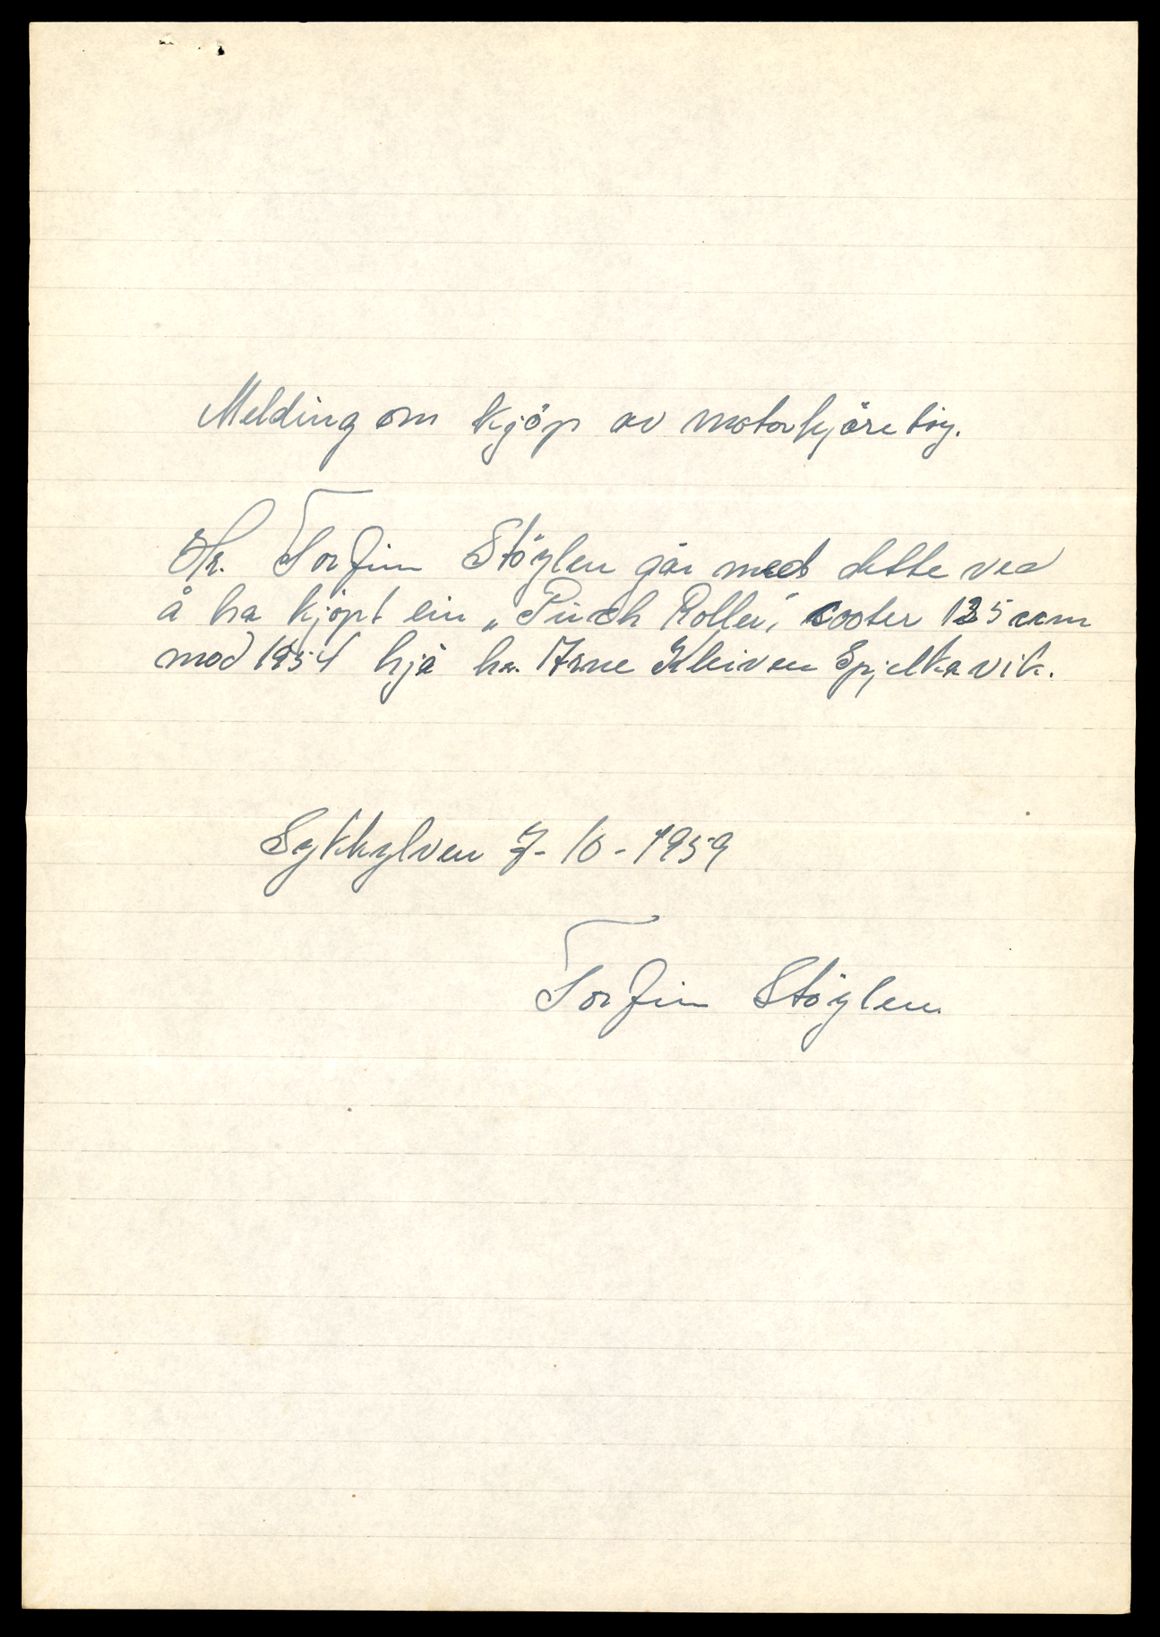 Melding om kjöp av motorkjöretöy.
Hr. Torfinn Stöylen går med dette ved
å ha kjöpt ein „Puch Roller", cooter 125 ccm
mod 1954 hjå hr. Arne Kleiven Spjelkavik.
Sykkylven 7-10-1959
Torfinn Stöylen